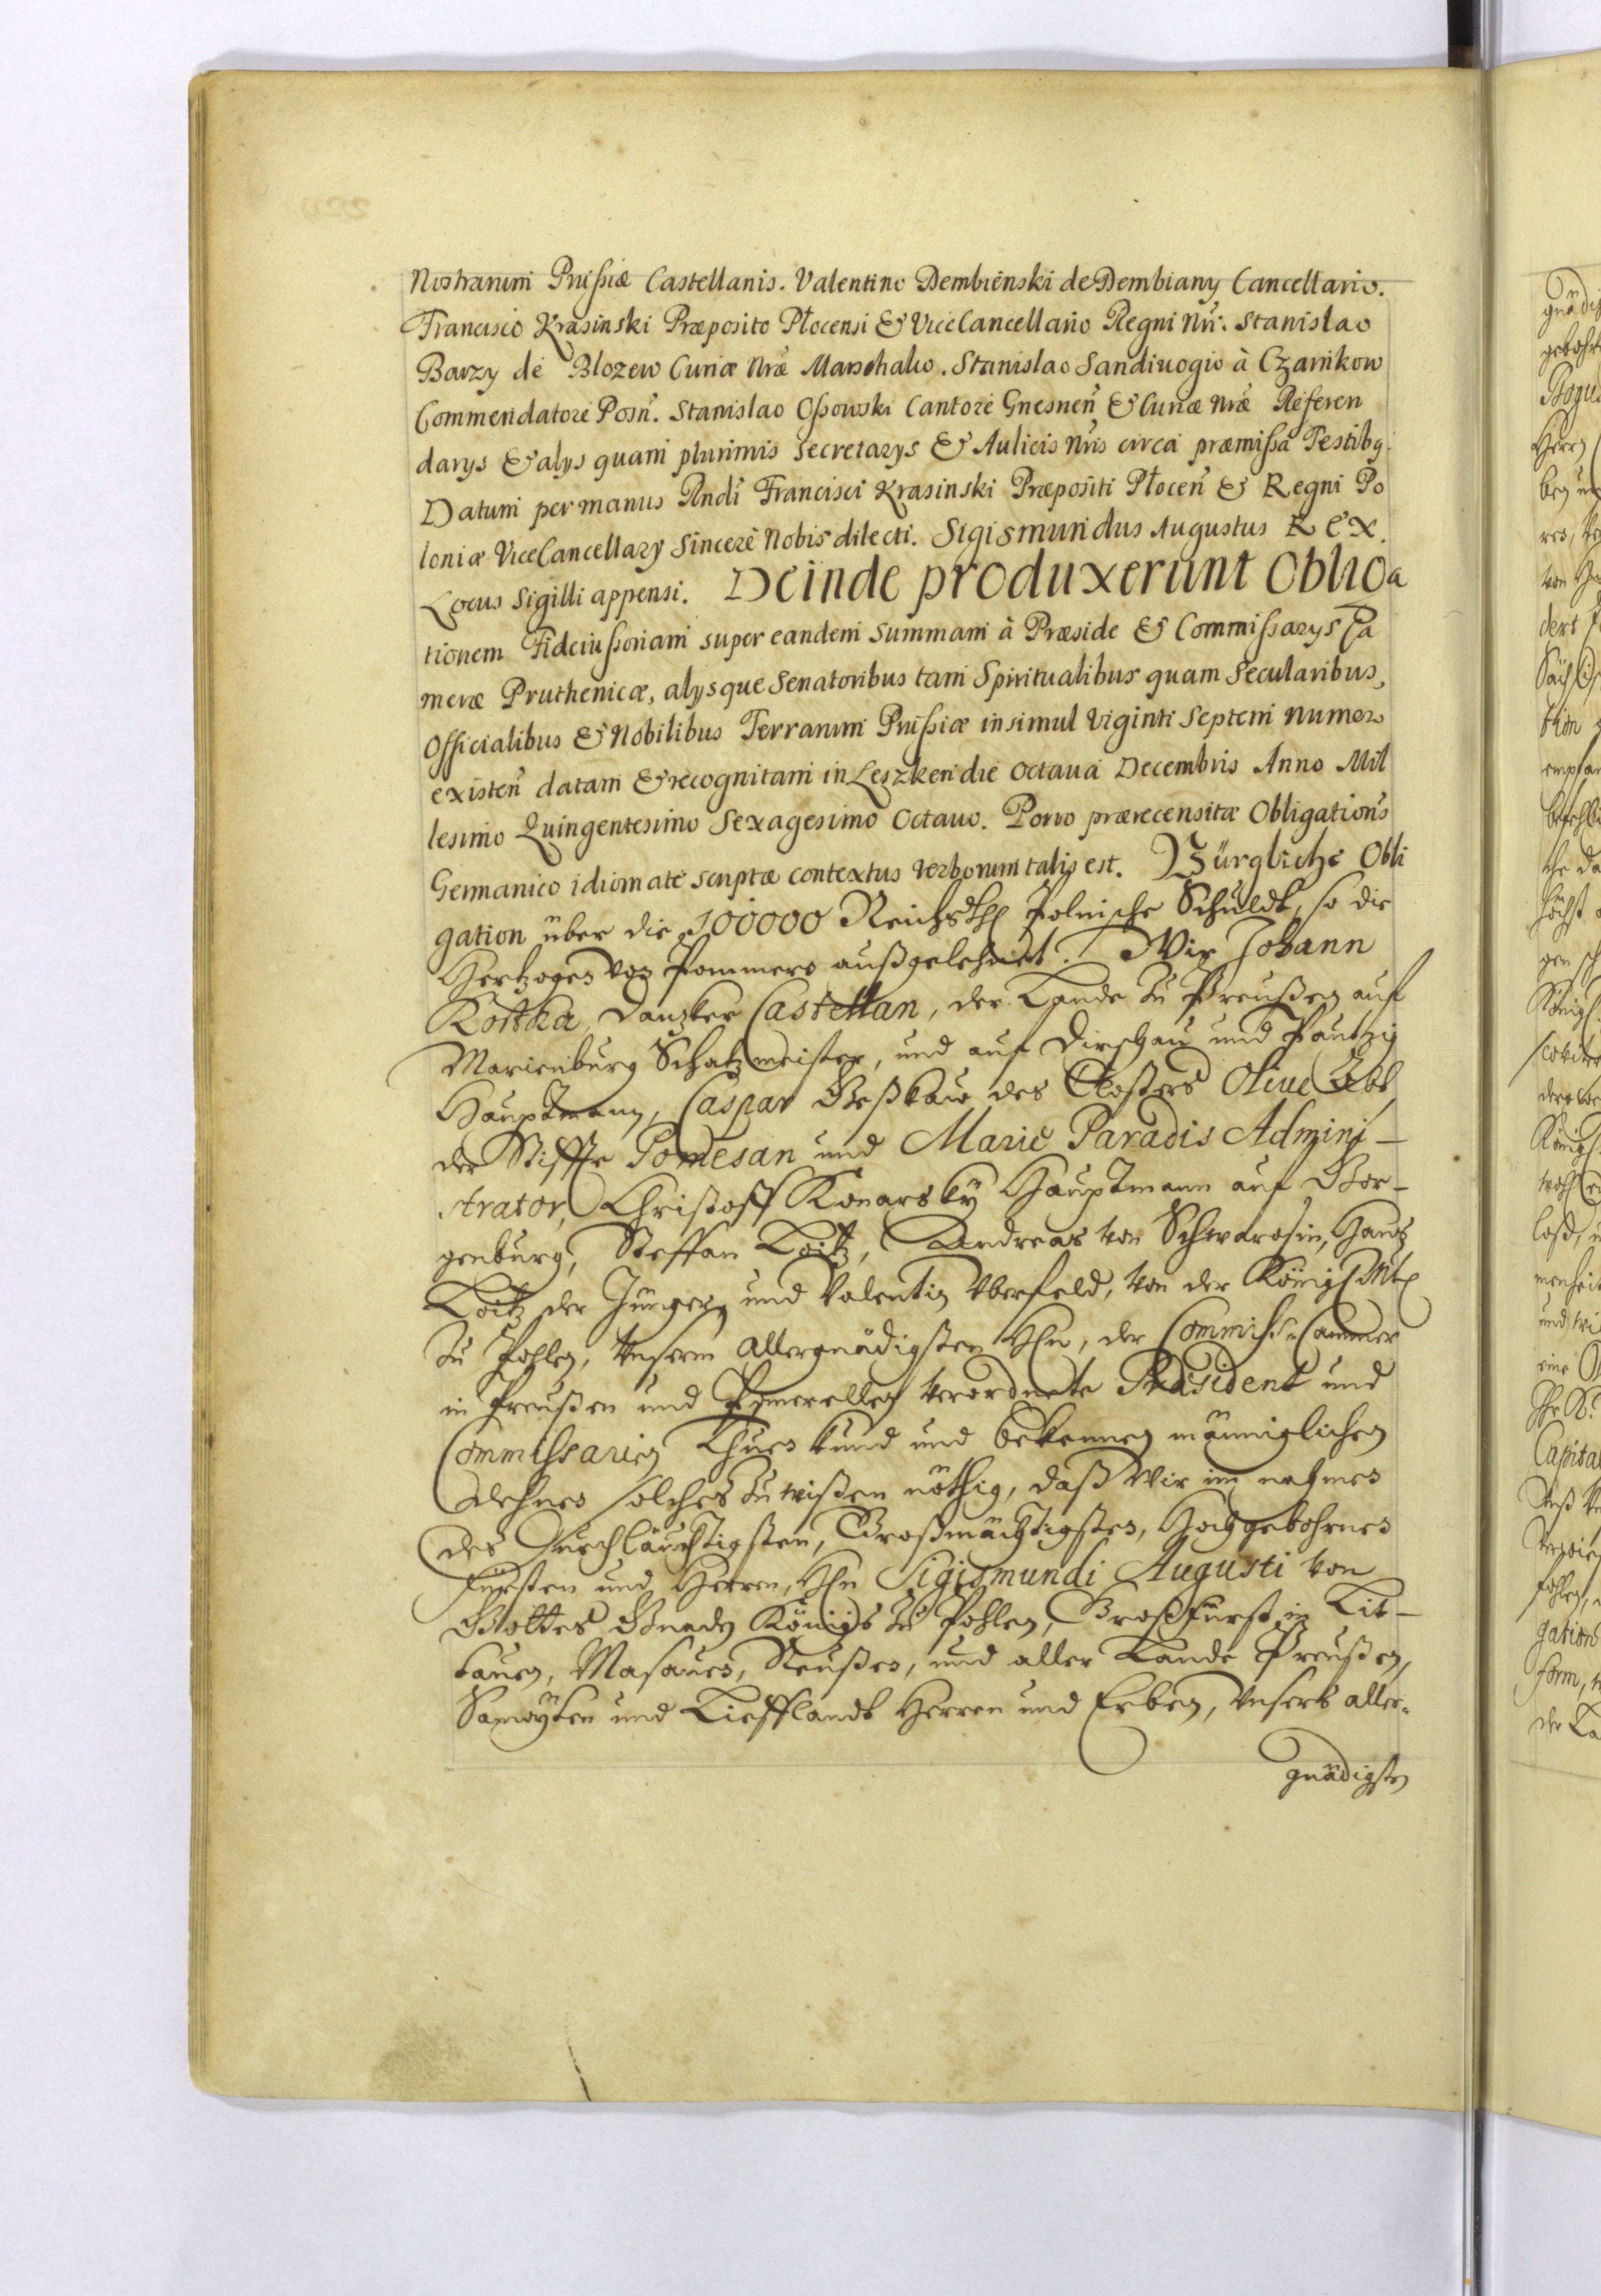 Nostrarum Prussiæ Castellanis. Valentino Dembienski de Dembiany Cancellario.
Francisco Krasinski Præposito Plocensi & ViceCancellario Regni Nri. Stanislao
Barzy de Blozew Curiæ Nræ Marschalco. Stanislao Sandiuogio à Czarnkow
Commendatore Posn. Stanislao Ossowski Cantore Gnesnen & Curiæ Nræ Referen
darys & alys quam plurimis Secretarys & Aulicis Nris circa præmissa Testibq.
Datum per manus Rndi Francisci Krasinski Præpositi Plocen & Regni Po
loniæ ViceCancellary Sincere Nobis dilecti. Sigismundus Augustus REX.
Locus Sigilli appensi. Deinde produxerunt Obliga
tionem Fideiussoriam super eandem Summam à Præside & Commissarys Ca
meræ Pruthenicæ, alysque Senatoribus tam Spiritualibus quam Secularibus,
Officialibus & Nobilibus Terrarum Prussiæ insimul Viginti Septem Numero
existen datam & recognitam in Leszken die Octaua Decembris Anno Mil
lesimo Quingentesimo Sexagesimo Octauo. Porro prærecensitæ Obligationis
Germanico idiomate scriptæ contextus verborum talis est. Bürgliche Obli
gation über die 100000 Reichsthl Polnische Schuldt, so die
Hertzogen von Pommern außgelehnet. Wir Johann
Kostka, Danzker Castellan, der Lande zu Preußen auf
Marienburg Schatzmeister, und auf Dirschau und Pautzig
Hauptmann, Caspar Geßkaw des Closters Oliue Abt,
der Stiffte Pomesan und Marie Paradis Admini-
strator, Christoff Konarsky Hauptmann auf Bor-
genburg, Steffan Loitz, Andreas von Schwarosin, Hanß
Loitz der Jünger, und Valentin Vberfeld, von der Königl Mtt
zu Pohlen, Vnserm allergnädigsten Hln, der Commiss: Cammer
in Preußen und Pomerellen verordnete Præsident und
Commissarien Thuen kund und bekennen männiglichen
dehnen solches zu wißen nöthig, daß Wir im nahmen
des Durchläuchtigsten, Großmächtigsten, Hochgebohrnen
Fürsten und Herren, Hln Sigismundi Augusti von
Gottes Gnaden Königs zu Pohlen, Großfürst in Lit-
tauen, Masauen, Reußen, und aller Lande Preußen,
Samoyten und Liefflandt Herren und Erben, Vnsers aller-
gnädigsten